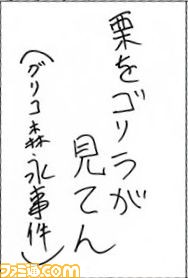 栗をゴリラが
見てん
(グリコ森永事件)
ファミ通.com